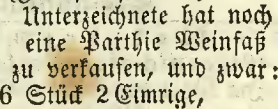 Unterzeichnete hat noch
eine Parthie Weinfaß
zu verkaufen, und zwar:
6 Stück 2 Eimrige,